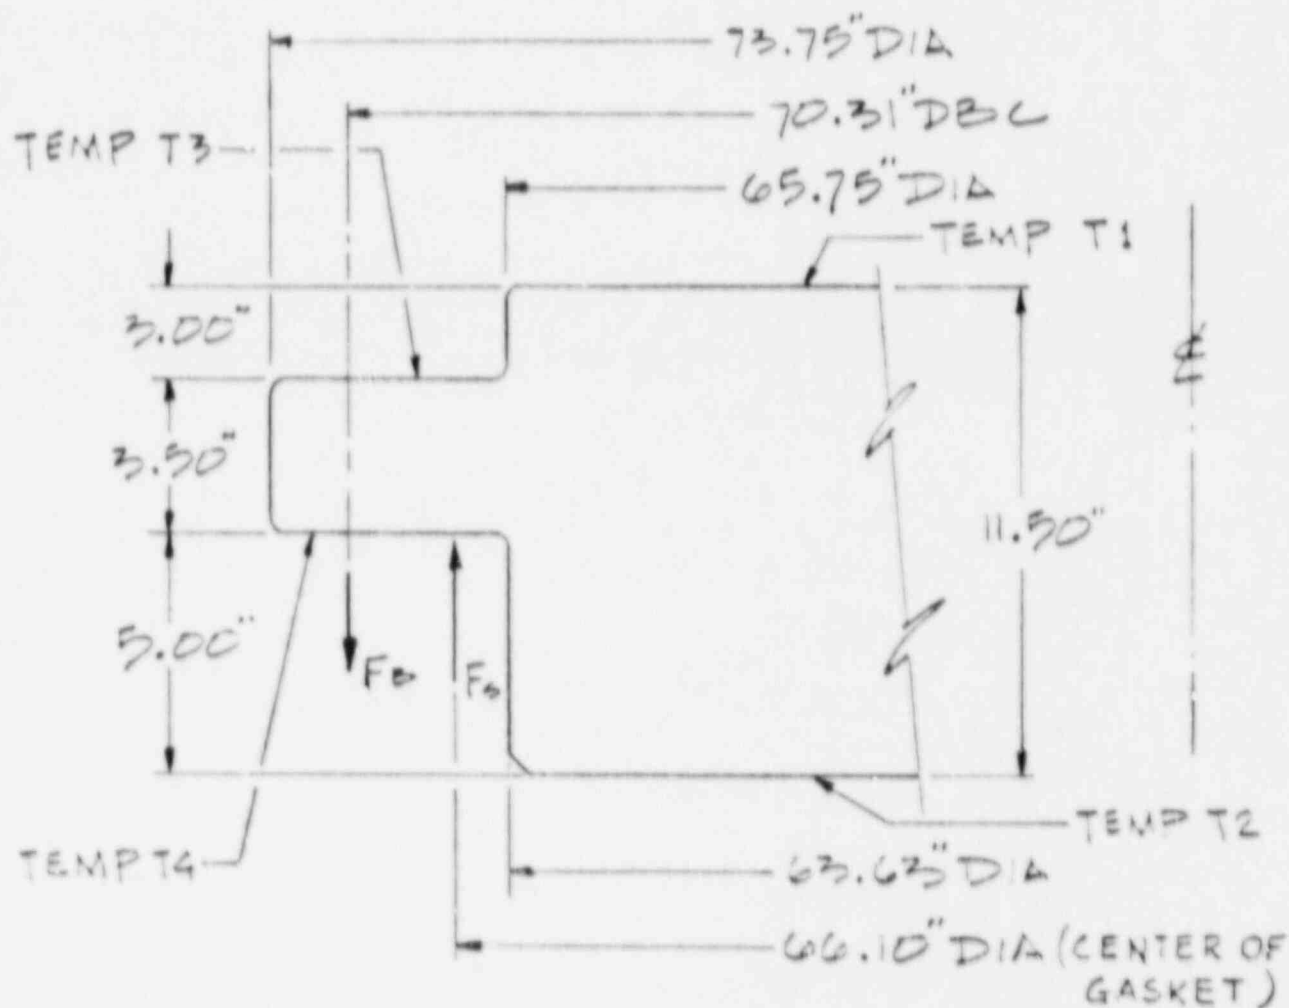 73.75" DIA
70.31" DBC
TEMP T3
65.75" DIA
TEMP T1
3.00"
℄
3.50"
11.50"
5.00"
FB
FG
TEMP T2
TEMP T4
63.63" DIA
66.10" DIA (CENTER OF
GASKET)